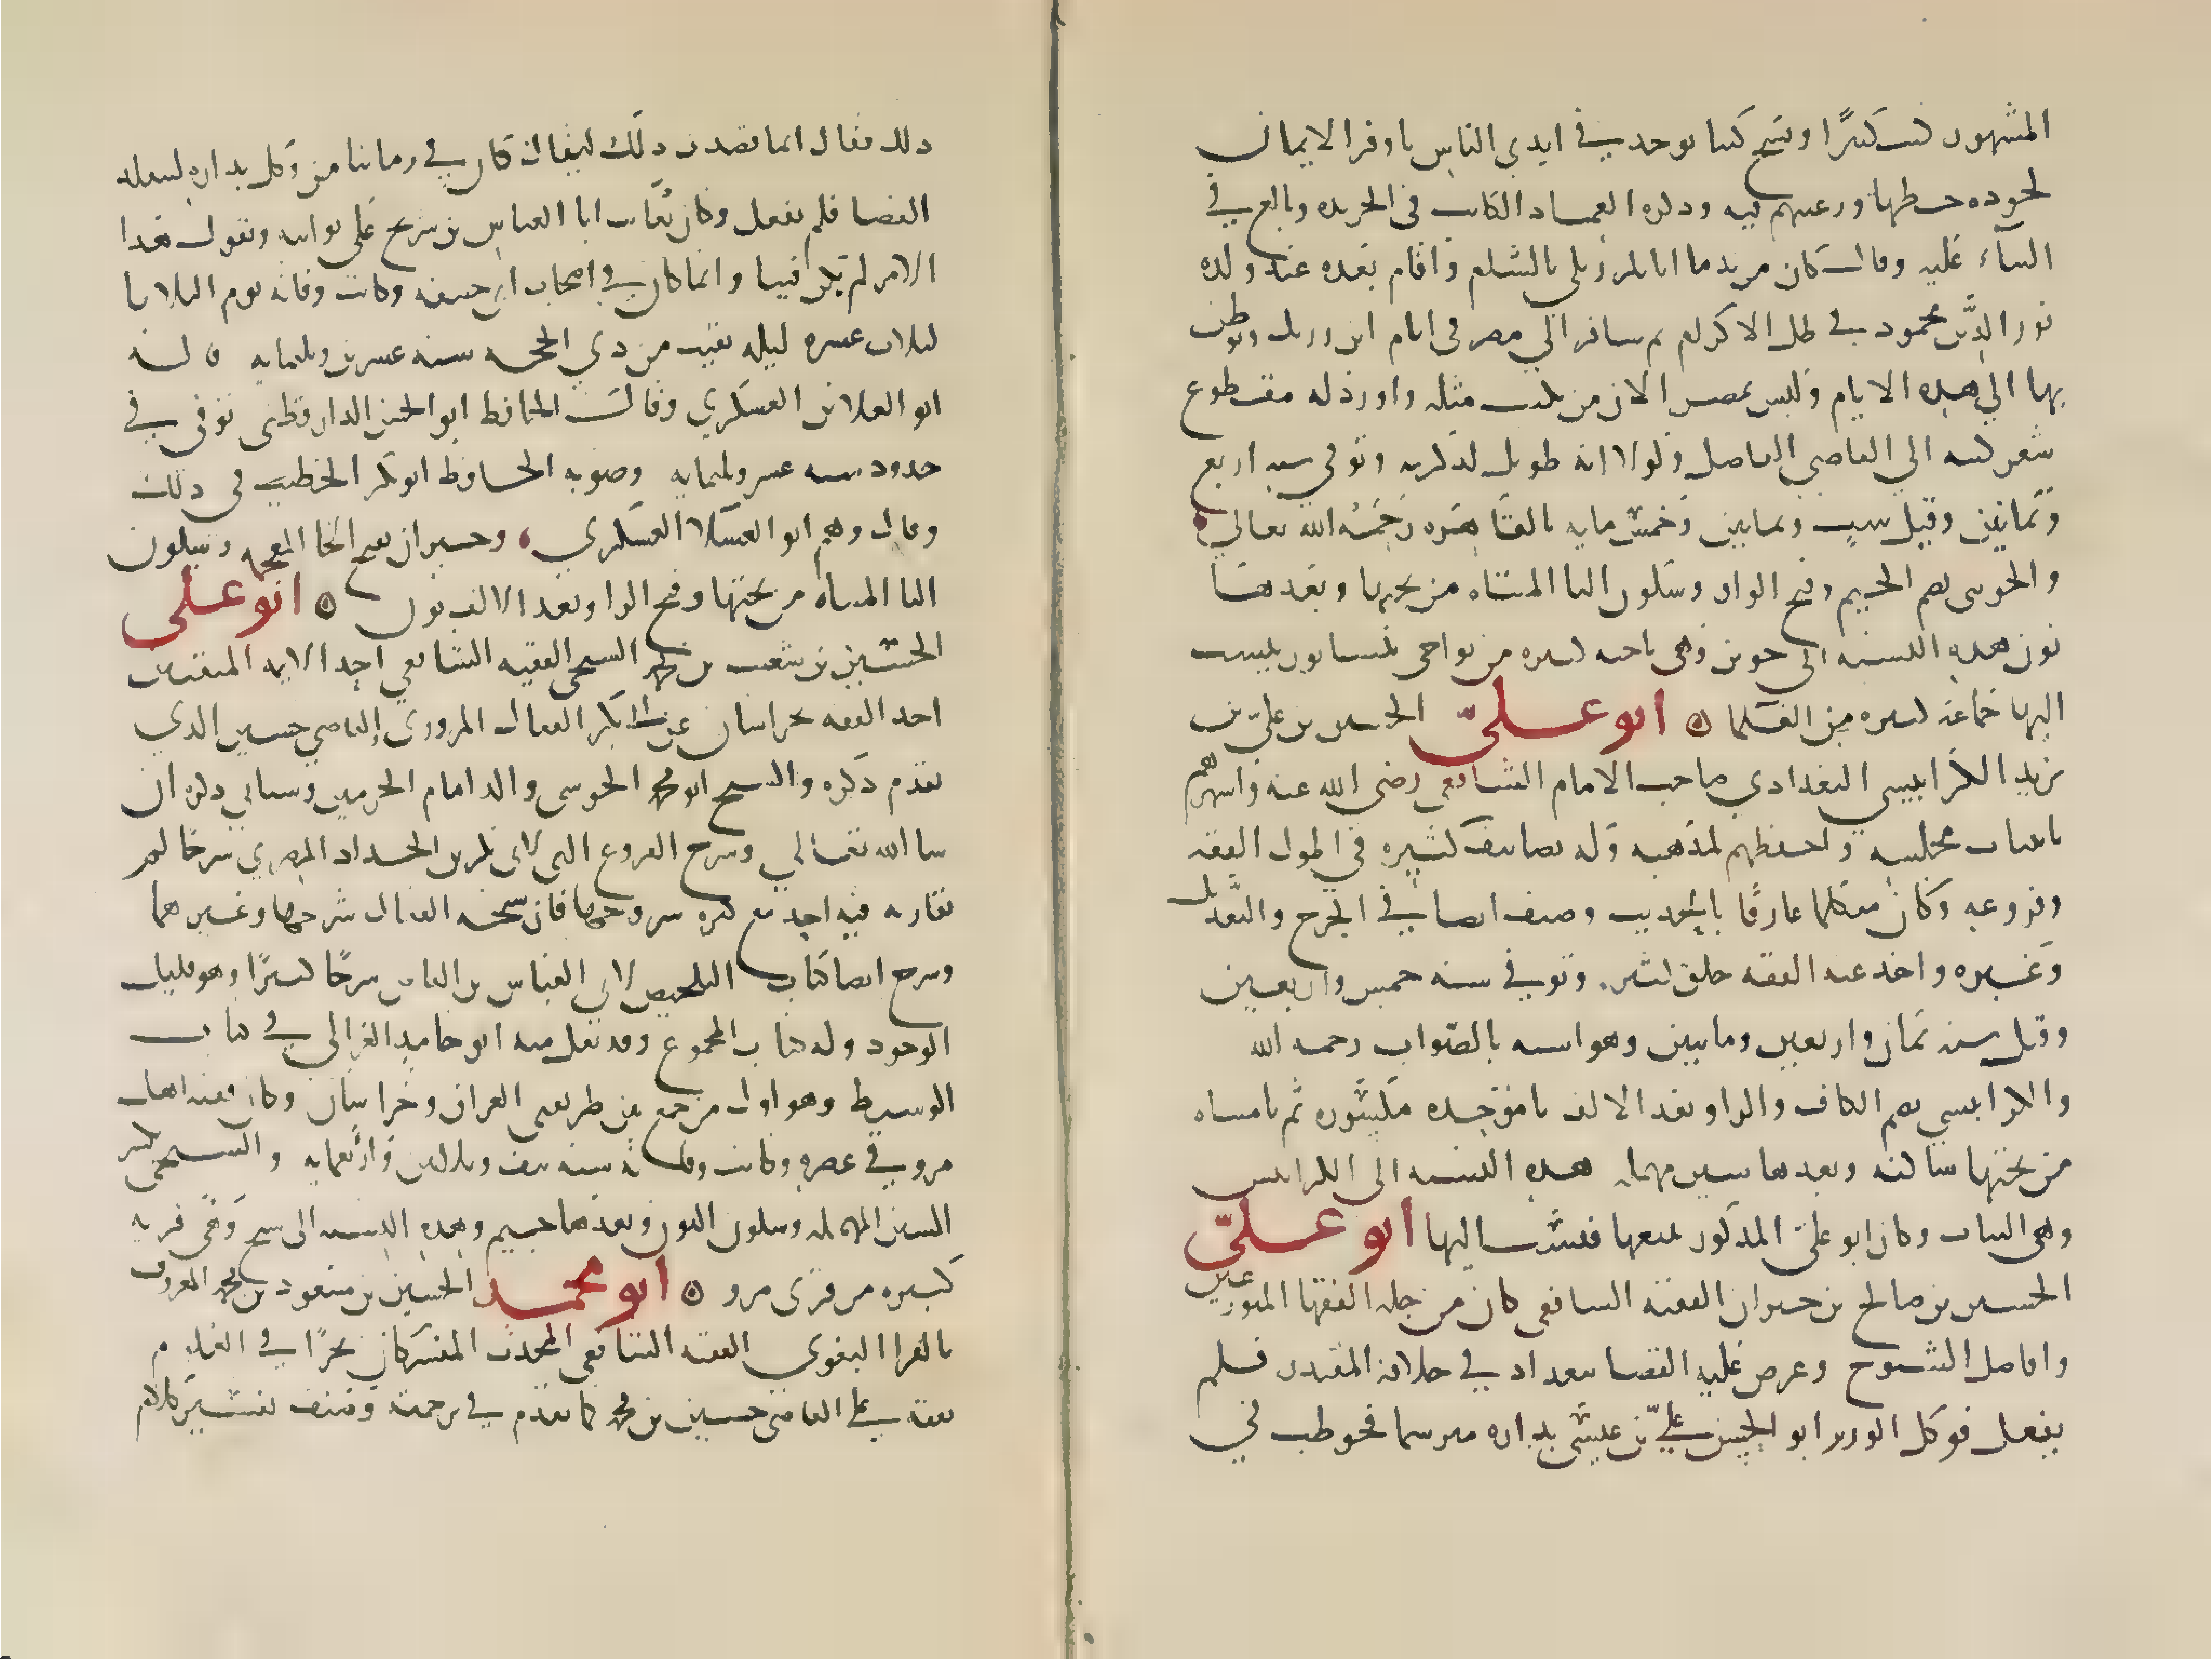 المشهور كتب كثيرًا ونسخ كتبا توجد في ايدي الناس باوفر الاثمان
لجوده خطها ورغبتهم فيه وذكره العماد الكاتب في الخريده وبالغ في
الثناء عليه وقال كان من ندما اتابك زنكي بالشام واقام بعده عند ولده
نور الدين محمود في ظل الاكرام ثم سافر الي مصر في ايام ابن رزيك وتوطن
بها الي هذه الايام وليس بمصر الان من يكتب مثله واورد له مقطوع
شعر كتبه الي القاضي الفاضل ولولا انه طويل لذكرته وتوفي سنه اربع
وثمانين وقيل ست وثمانين وخمس مايه بالقاهره رحمه الله تعالي
والجويني بضم الجيم وفتح الواو وسكون اليا المثناه من تحتها وبعدها
نون هذه النسبه الي جوين وهي ناحيه كبيره من نواحي نيسابور ينسب
اليها جماعه كثيره من العلما ۞ ابو علىّ الحسين بن علي بن
يزيد الكرابيسي البغدادي صاحب الامام الشافعي رضي الله عنه واشهرهم
بانتياب مجلسه واحفظهم لمذهبه وله تصانيف كثيره في اصول الفقه
وفروعه وكان متكلما عارفًا بالحديث وصنف ايضا في الجرح والتعديل
وغيره واخذ عنه الفقه خلق كثير. وتوفي سنه خمس واربعين
وقيل سنه ثمان واربعين ومايتين وهو اشبه بالصواب رحمه الله
والكرابيسي بفتح الكاف والراو بعد الالف با موحده مكسوره ثم يا مثناه
من تحتها ساكنه وبعدها سين مهمله هذه النسبه الى الكرابيس
وهي الثياب وكان ابو علي المذكور يبيعها فنسب اليها ابو علىّ
الحسين بن صالح بن خيران الفقيه الشافعي كان من جله الفقها المتورعين
وافاضل الشيوخ وعرض عليه القضا ببغداد في خلافه المقتدر فلم
يفعل فوكل الوزير ابو الحسن علي بن عيسى بداره مترسما فخوطب في
ذلك فقال انما قصدت ذلك ليقال كان في زماننا من وكل بداره ليتقلد
القضا فلم يفعل وكان يعاتب ابا العباس بن سريج على توليته ويقول هذا
الامر لم يكن فينا وانما كان في اصحاب ابي حنيفه وكانت وفاته يوم الثلاثا
لثلاث عشره ليله بقيت من ذي الحجه سنه عشرين وثلثمايه
ابو العلا بن العسكري وقال الحافظ ابو الحسن الدارقطني توفي في
حدود سنه عشر وثلثمايه وصوبه الحافظ ابو بكر الخطيب في ذلك
وقال وهم ابو العلا العسكري، وخيران بفتح الخا المعجمه وسكون
اليا المثناه من تحتها وفتح الرا وبعد الالف نون ۞ ابو على
الحسين بن شعيب بن محمد السنجي الفقيه الشافعي احد الايمه المتقنين
اخذ الفقه بخراسان عن ابي بكر القفال المروزي والقاضي حسين الذي
تقدم ذكره والشيخ ابو محمد الجويني والد امام الحرمين وسياتي ذكره ان
شا الله تعالي وشرح الفروع التي لابي بكر بن الحداد المصري شرحًا لم
يقاربه فيه احد مع كثره شروحها فان شيخه القفال شرحها وغيرهما
وشرح ايضا كتاب التلخيص لابي العباس بن القاص شرحًا كبيرًا وهو قليل
الوجود وله كتاب المجموع وقد نقل منه ابو حامد الغزالي في كتاب
الوسيط وهو اول من جمع بين طريقي العراق وخراسان وكان فقيه اهل
مرو في عصره وكانت وفاته سنه نيف وثلاثين واربعمايه والسنجي بكسر
السين المهمله وسكون النون وبعدها جيم وهذه النسبه الى سنج وهي قريه
كبيره من قرى مرو ۞ ابو محمد الحسين بن مسعود بن محمد المعروف
بالفرا البغوي الفقيه الشافعي المحدث المفسر كان بحرًا في العلوم
تفقه على القاضي حسين بن محمد كما تقدم في ترجمته وصنف تفسير كلام